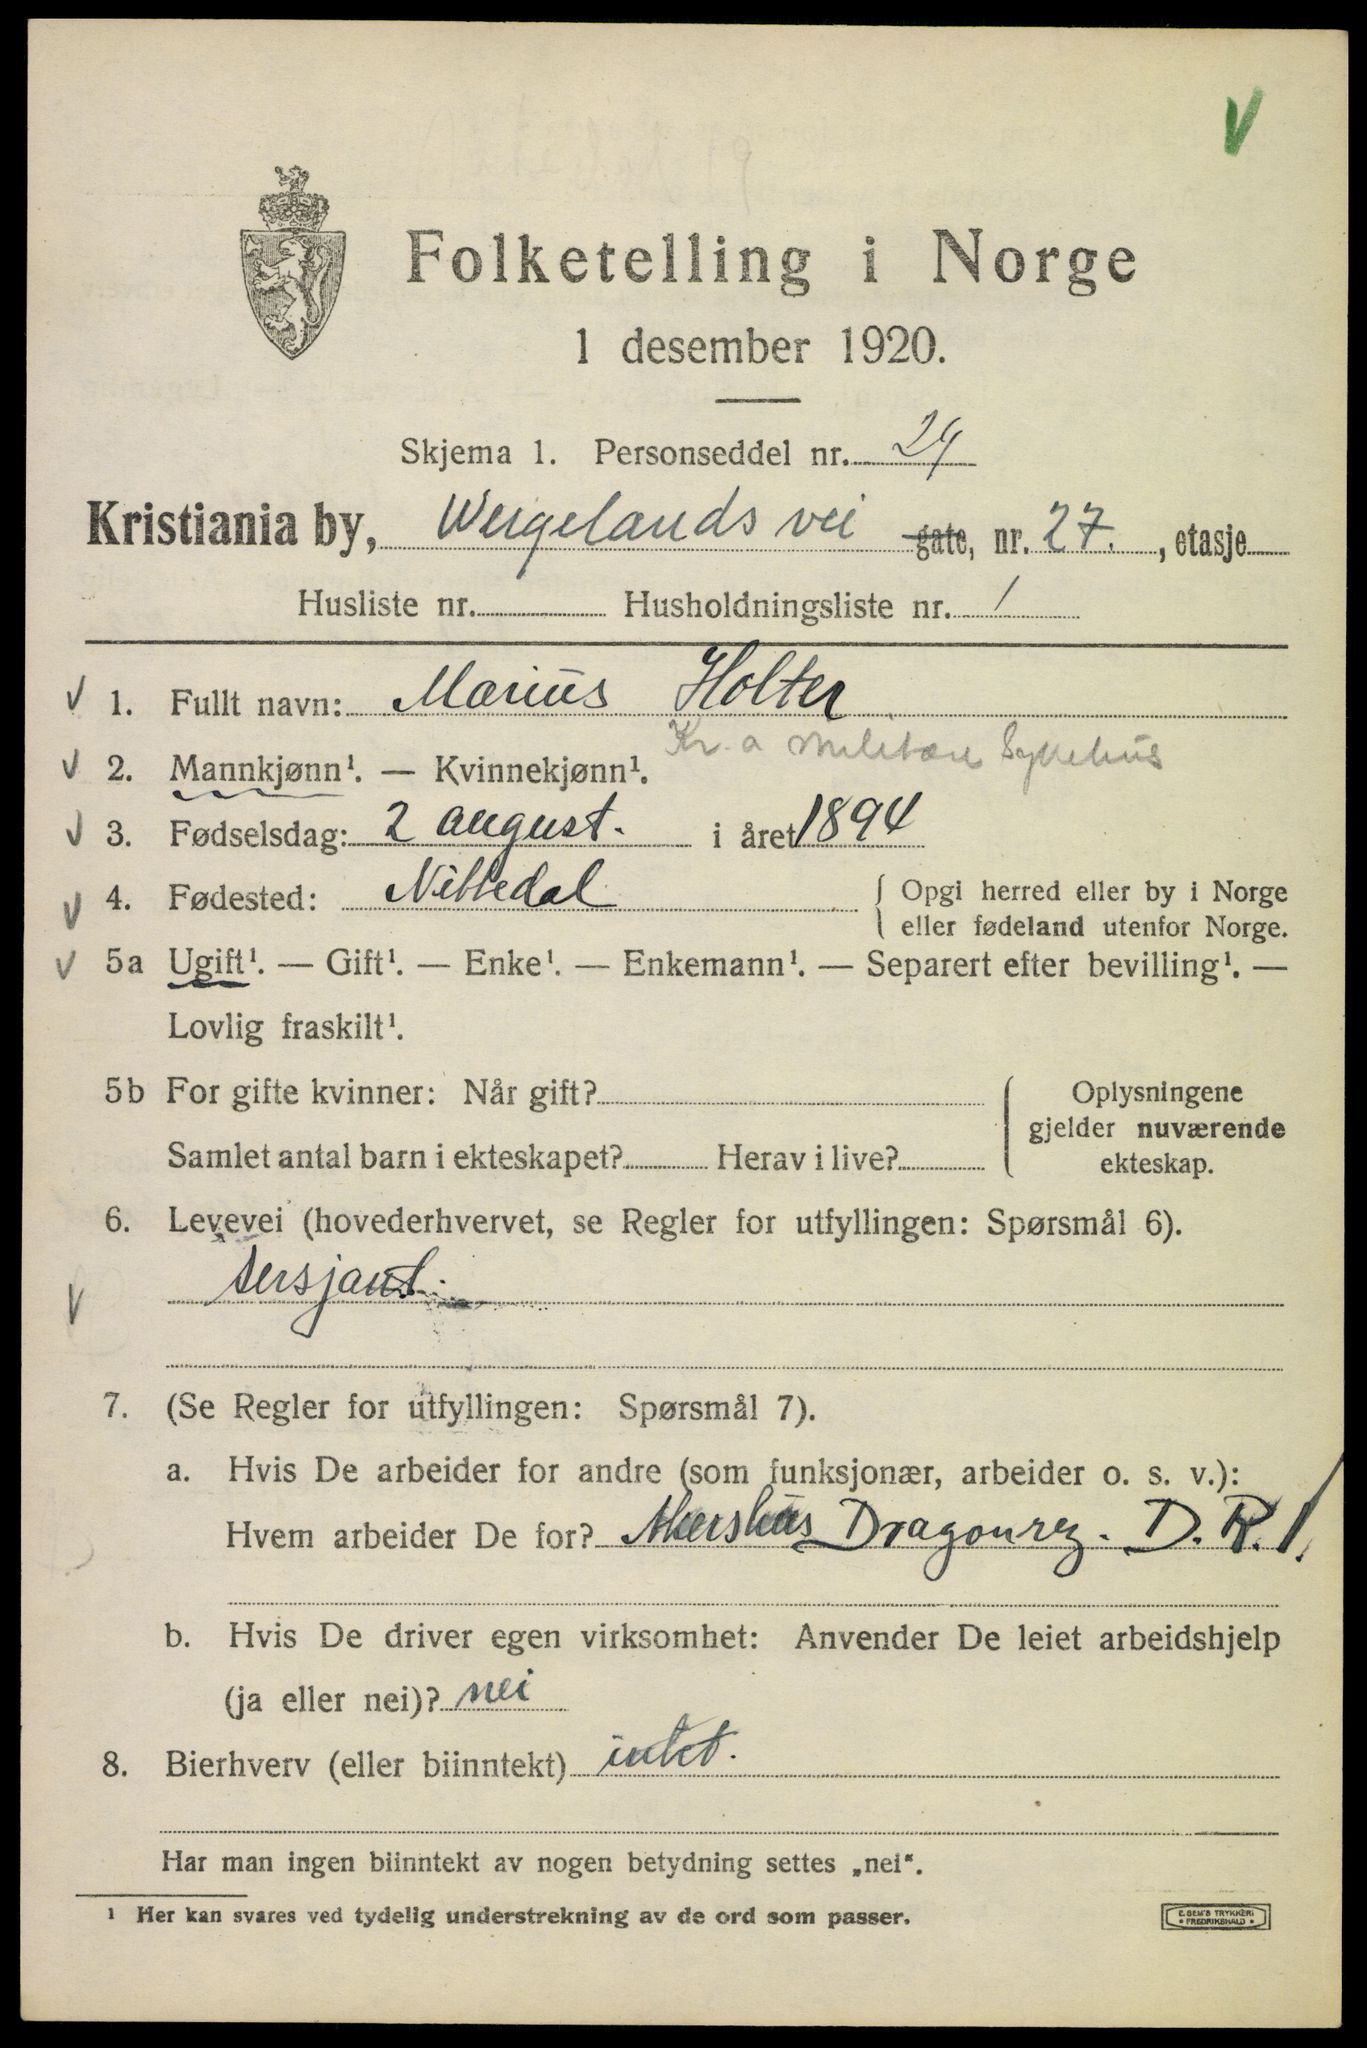 Folketelling i Norge
1 desember 1920.
Skjema 1. Personseddel nr. 29
Kristiania by, Wergelands vei gate, nr. 27. , etasje
Husliste nr. Husholdningsliste nr. 1
1. Fullt navn: Marius Holter
Kr.a Militære Sykehus
2. Mannkjønn¹. — Kvinnekjønn¹.
3. Fødselsdag: 2 august. i året 1894
4. Fødested: Nittedal { Opgi herred eller by i Norge
eller fødeland utenfor Norge.
5a Ugift¹. — Gift¹. — Enke¹. — Enkemann¹. — Separert efter bevilling¹. —
Lovlig fraskilt¹.
5b For gifte kvinner: Når gift?
Samlet antal barn i ekteskapet? Herav i live?
Oplysningene
gjelder nuværende
ekteskap.
6. Levevei (hovederhvervet, se Regler for utfyllingen: Spørsmål 6).
sersjant.
7. (Se Regler for utfyllingen: Spørsmål 7).
a. Hvis De arbeider for andre (som funksjonær, arbeider o. s. v.):
Hvem arbeider De for? Akershus Dragonreg. D.R.1.
b. Hvis De driver egen virksomhet: Anvender De leiet arbeidshjelp
(ja eller nei)? nei
8. Bierhverv (eller biinntekt) intet.
Har man ingen biinntekt av nogen betydning settes „nei“.
¹ Her kan svares ved tydelig understrekning av de ord som passer.
E. SEM'S TRYKKERI
• FREDRIKSHALD •